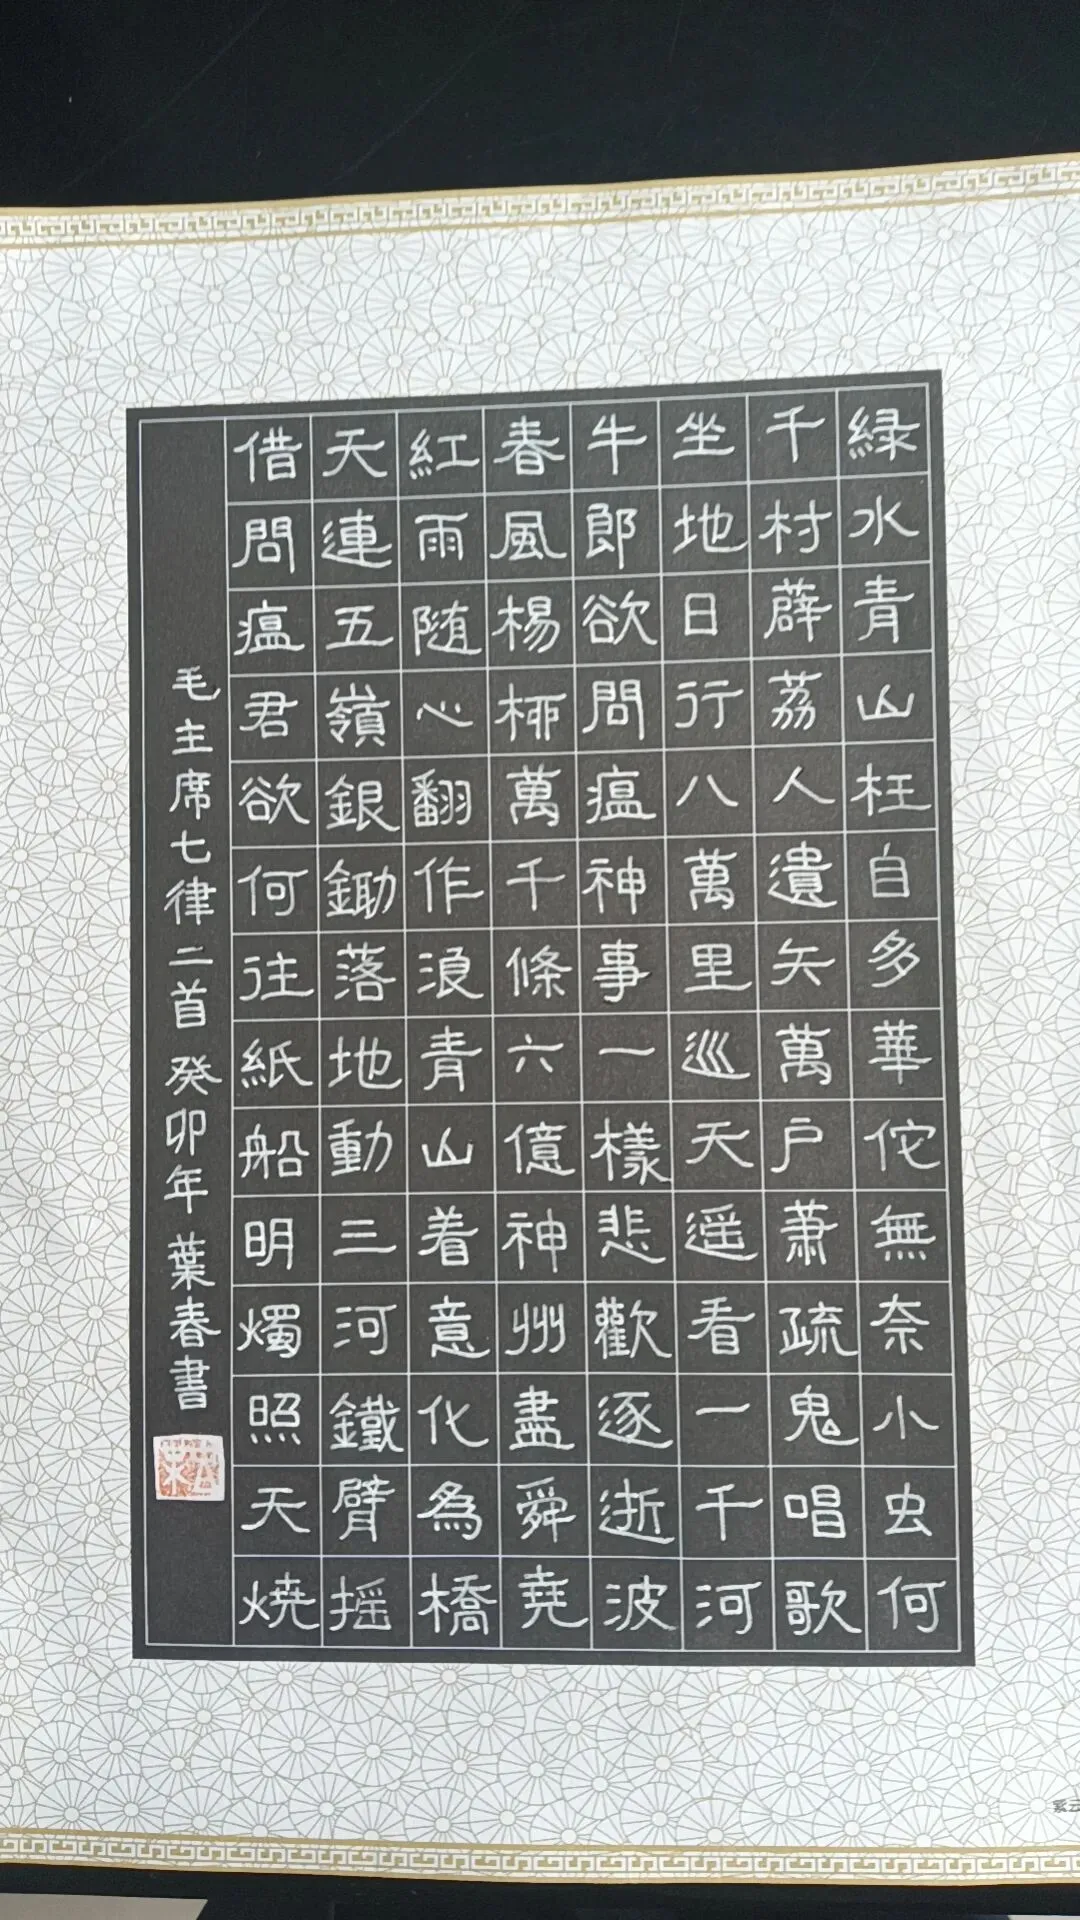 緑水青山枉自多華佗無奈小虫何
千村薜荔人遺矢萬戶蕭疏鬼唱歌
坐地日行八萬里巡天遥看一千河
牛郎欲問瘟神事一樣悲歡逐逝波
春風楊柳萬千條六億神州盡舜堯
紅雨随心翻作浪青山着意化為橋
天連五嶺銀鋤落地動三河鐵臂摇
借問瘟君欲何往紙船明燭照天燒
毛主席七律二首 癸卯年 葉春書
紫云